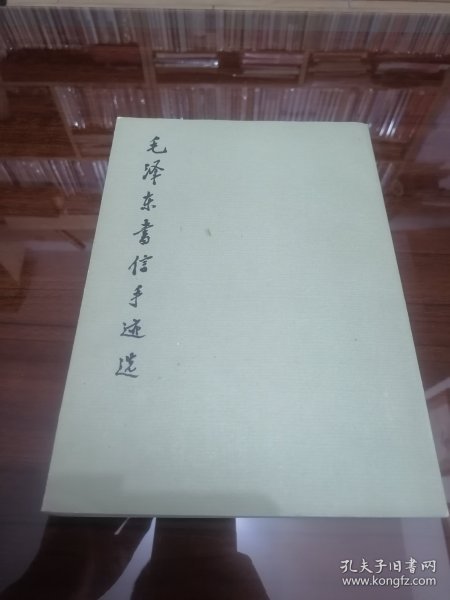 毛泽东书信手迹选
孔夫子旧书网
www.kongfz.com